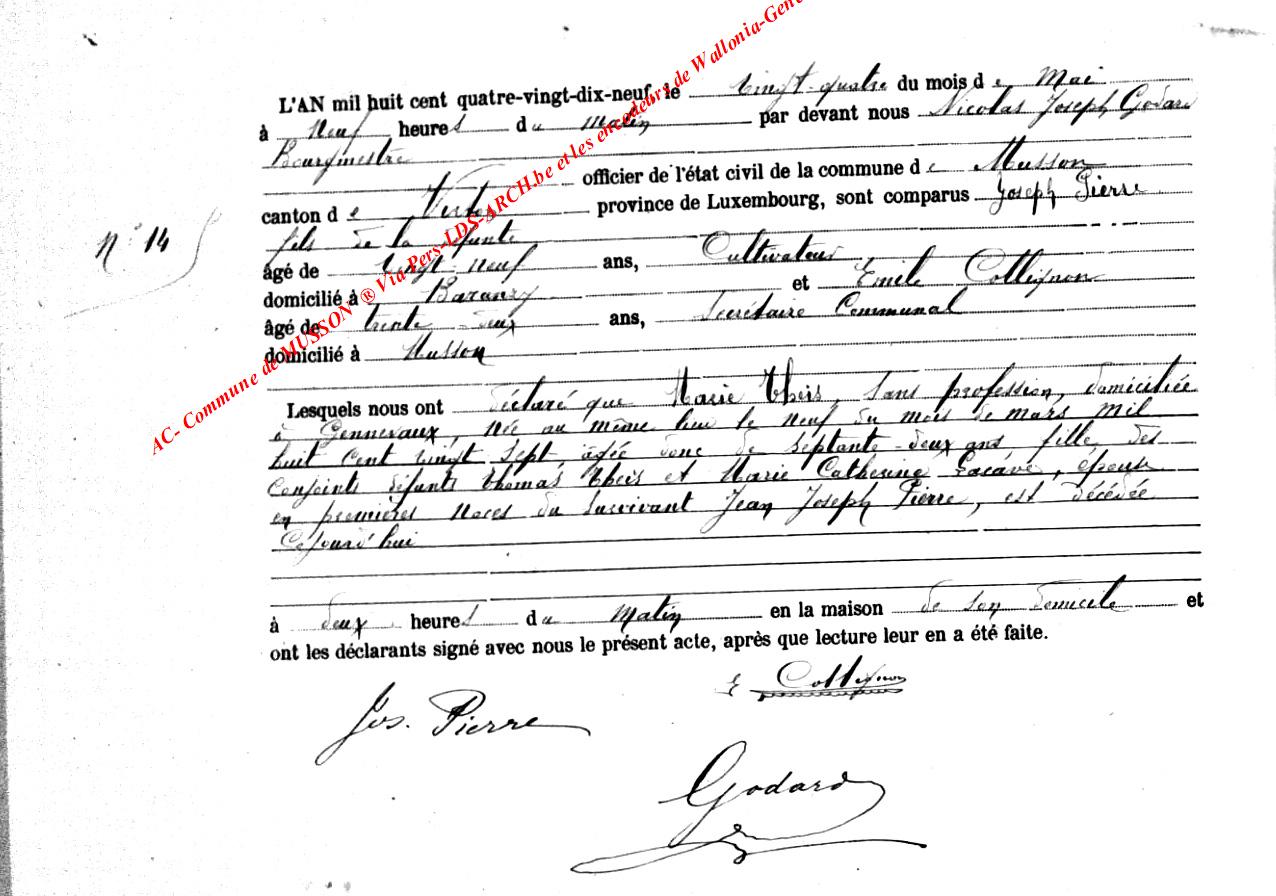 L'AN mil huit cent quatre-vingt-dix-neuf, le vingt-quatre du mois de Mai
à Neuf heures du Matin par devant nous Nicolas Joseph Godard
Bourgmestre
officier de l'état civil de la commune de Musson
canton de Virton province de Luxembourg, sont comparus Joseph Pierre
fils de la
N° 14
âgé de vingt-neuf ans, Cultivateur
domicilié à Baranzy et Emile Collignon
âgé de trente-deux ans, Secrétaire Communal
domicilié à Musson
Lesquels nous ont déclaré que Marie Theis, sans profession, domiciliée
à Gennevaux, née au même lieu le neuf du mois de mars mil
huit cent vingt sept, âgée donc de septante-deux ans, fille des
conjoints défunts Thomas Theis et Marie Catherine Lacave, épouse
en premières noces du survivant Jean Joseph Pierre, est décédée
cejourd'hui
à deux heures du Matin en la maison de son domicile et
ont les déclarants signé avec nous le présent acte, après que lecture leur en a été faite.
E Collignon
Jos. Pierre
Godard
AC- Commune de MUSSON ® Via Pers-LDS-ARCH.be et les encodeurs de Wallonia-Gen